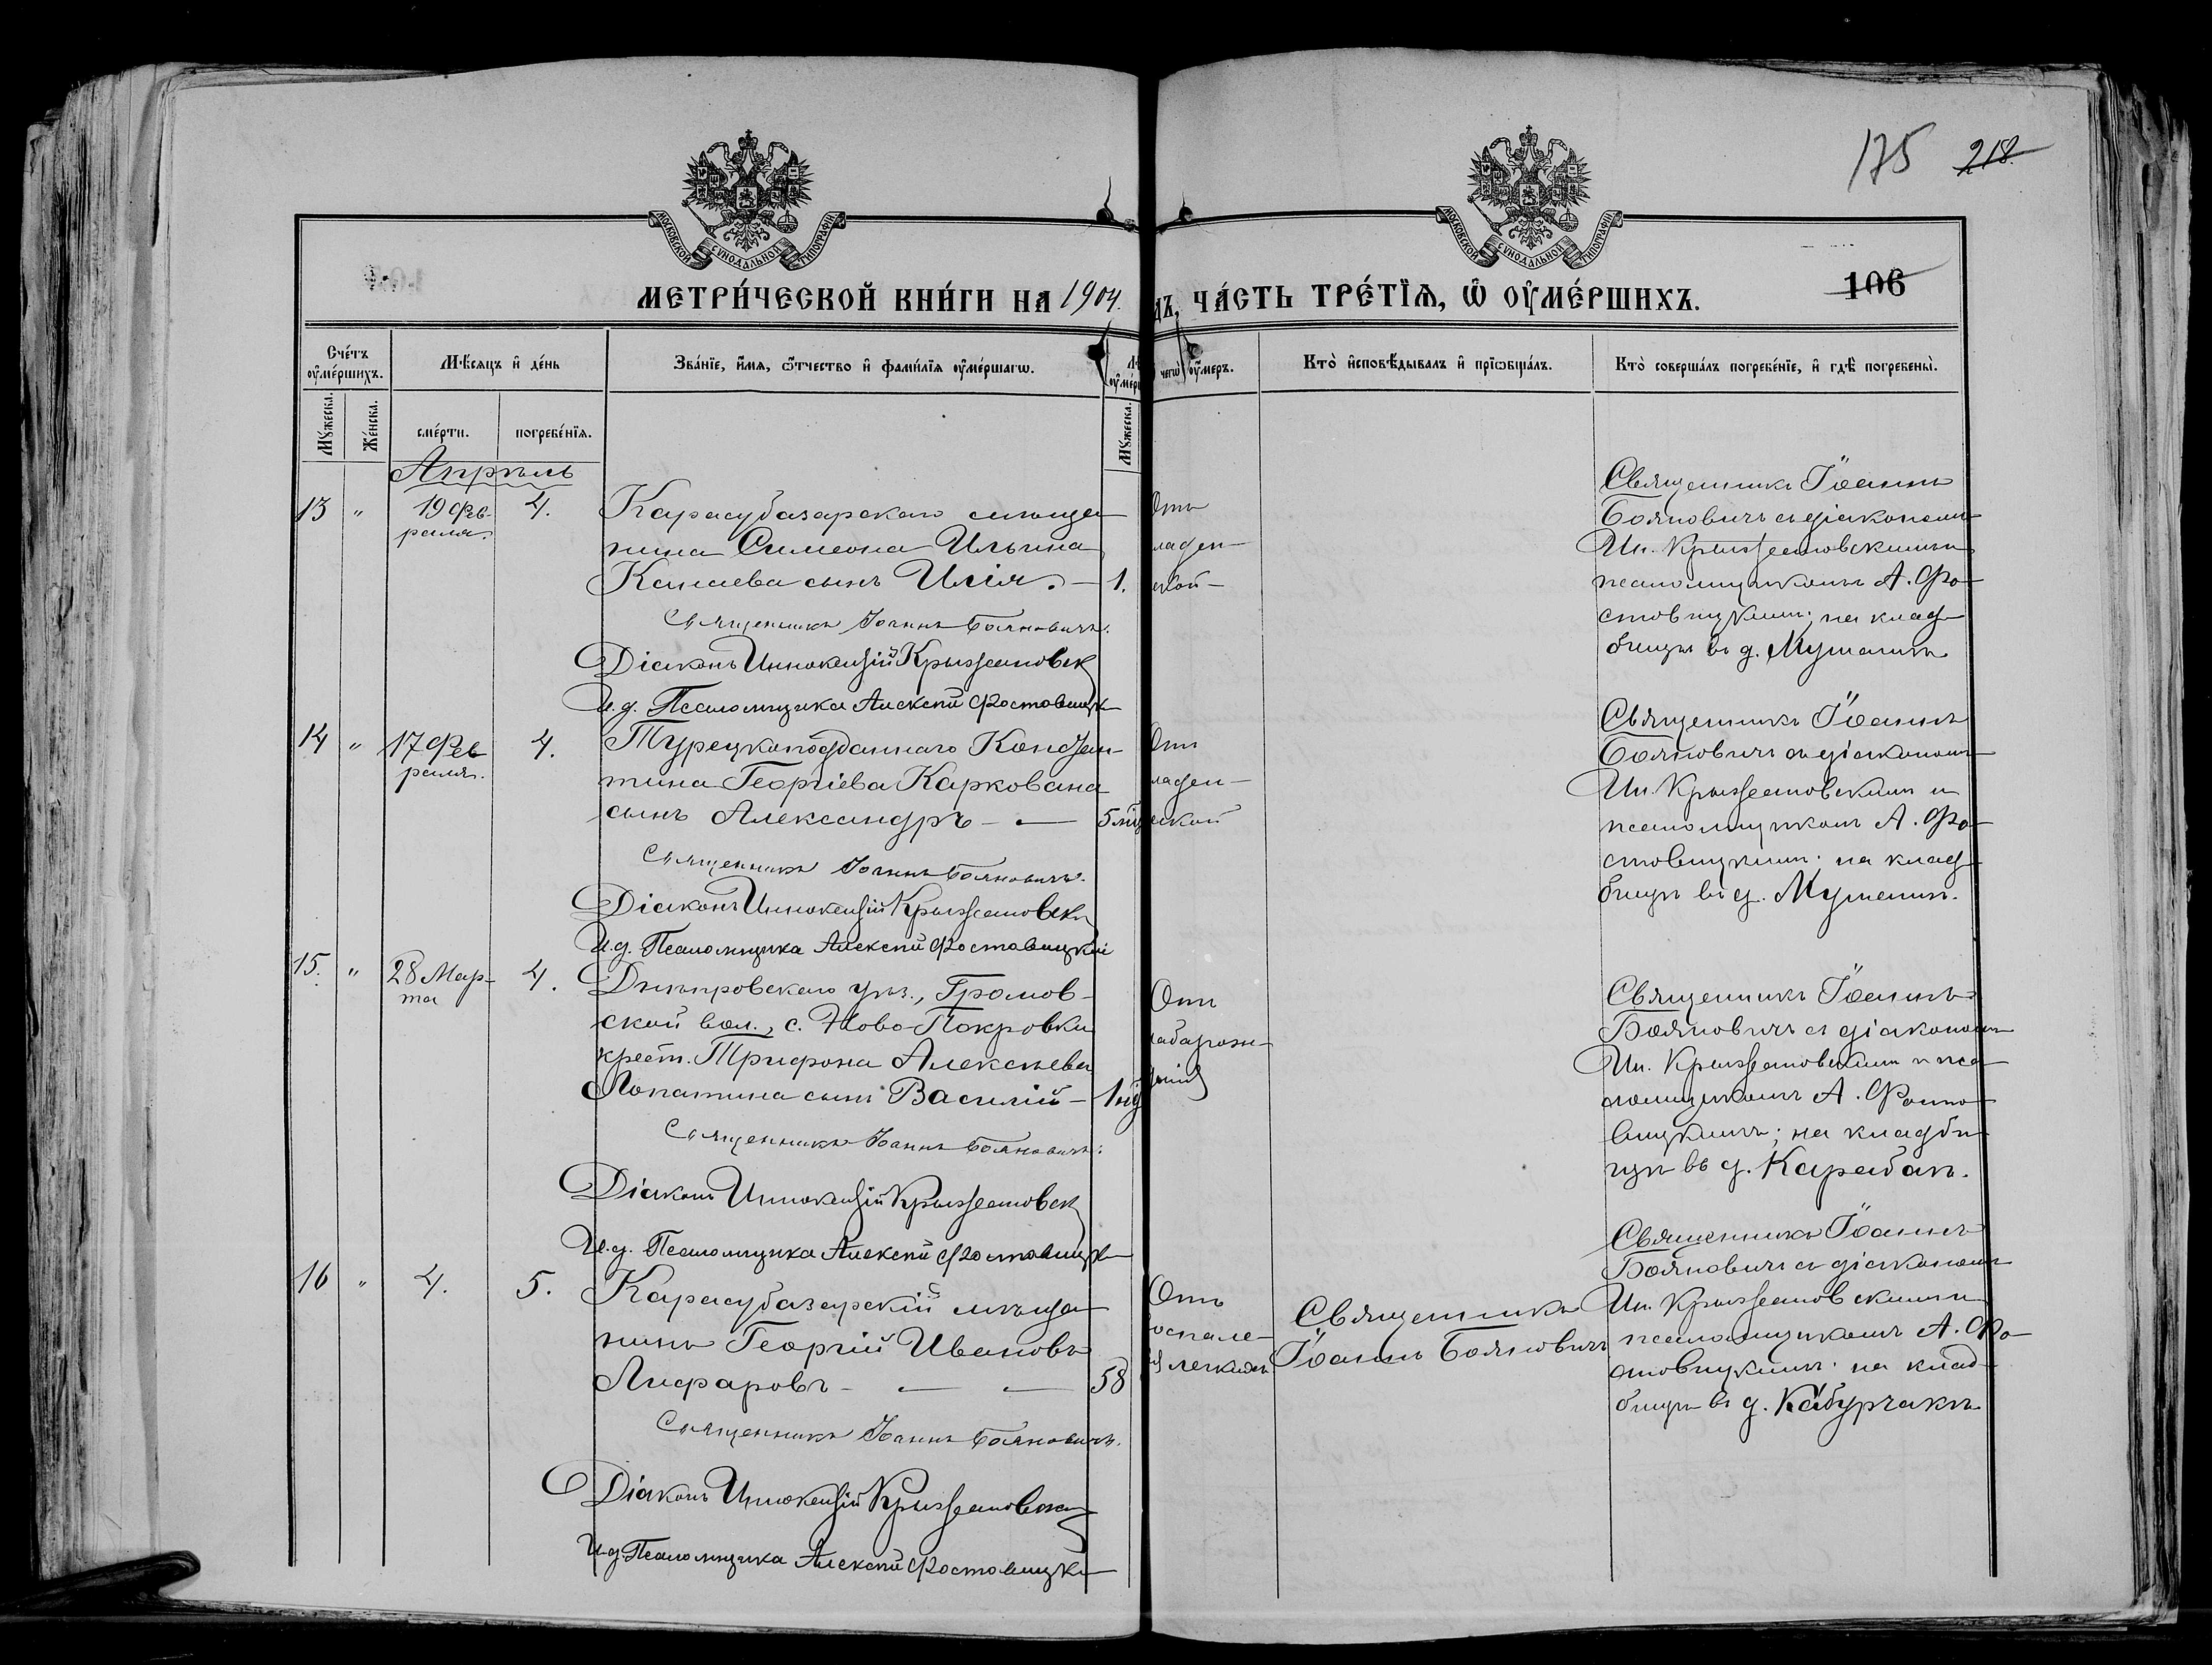 175 218.
МОСКОВСКОЙ СѴНОДАЛЬНОЙ ТИПОГРАФІИ
МОСКОВСКОЙ СѴНОДАЛЬНОЙ ТИПОГРАФІИ
106
МЕТРИ́ЧЕСКОЙ КНИ́ГИ НА 1904.
дъ, ЧА́СТЬ ТРЕ́ТІѦ, Ѡ҆ ОУ҆МЕ́РШИХЪ.
Сче́тъ оу҆ме́ршихъ.
Мꙋ́жеска.
Же́нска.
Мѣ́сяцъ и҆ де́нь
сме́рти.
погребе́нїѧ.
Зва́нїе, и҆́мѧ, ѻ҆́тчество и҆ фамилїѧ оу҆ме́ршагѡ.
Мꙋ́жеска.
чегѡ̀ оу҆́меръ.
Кто̀ и҆сповѣ́дывалъ и҆ прїѡбща́лъ.
Кто̀ соверша́лъ погребе́нїе, и҆ гдѣ̀ погребены̀.
Апрѣль
13 " 19 Фев-
раля. 4.
Карасубазарскаго мѣща-
нина Симеона Ильина
Канаева сынъ Илія. — 1.
Священникъ Іоаннъ Бояновичъ.
Діаконъ Иннокентій Крыжановск
И.д. Псаломщика Алексѣй Фостовицк
Отъ
ладен-
ской
Священникъ Іоаннъ
Бояновичъ съ діакономъ
Ин. Крыжановскимъ и
псаломщикомъ А. Фо-
стовицкимъ; на клад-
бищѣ въ д.
14 " 17 Фев
раля. 4.
Турецкоподданнаго Констан-
тина Георгіева Каркована
сынъ Александръ — — 5 мѣс
Священникъ Іоаннъ Бояновичъ.
Діаконъ Иннокентій Крыжановск
И.д. Псаломщика Алексѣй Фостовицкій
Отъ
ладен-
ской
Священникъ Іоаннъ
Бояновичъ съ діакономъ
Ин. Крыжановскимъ и
псаломщикомъ А. Фо-
стовицкимъ; на клад-
бищѣ въ д.
15. " 28 Мар-
та 4.
Днѣпровскаго уѣз., Громов-
ской вол., с. Ново-Покровки
крест. Трифона Алексѣева
Лопатина сынъ Василій — 1
Священникъ Іоаннъ Бояновичъ.
Діаконъ Иннокентій Крыжановск
И.д. Псаломщика Алексѣй Фостовицк
Отъ
Священникъ Іоаннъ
Бояновичъ съ діакономъ
Ин. Крыжановскимъ и пса-
ломщикомъ А. Фосто-
вицкимъ; на кладби-
щѣ въ д. Карабаѣ.
16 " 4. 5.
Карасубазарскій мѣща-
нинъ Георгій Ивановъ
Лифаровъ — — — 58
Священникъ Іоаннъ Бояновичъ.
Діаконъ Иннокентій Крыжановск
И.д. Псаломщика Алексѣй Фостовицк
Отъ
оспале-
легкихъ
Священникъ
Іоаннъ Бояновичъ
Священникъ Іоаннъ
Бояновичъ съ діакономъ
Ин. Крыжановскимъ и
псаломщикомъ А. Фо-
стовицкимъ; на клад-
бищѣ въ д. Кабурчакъ